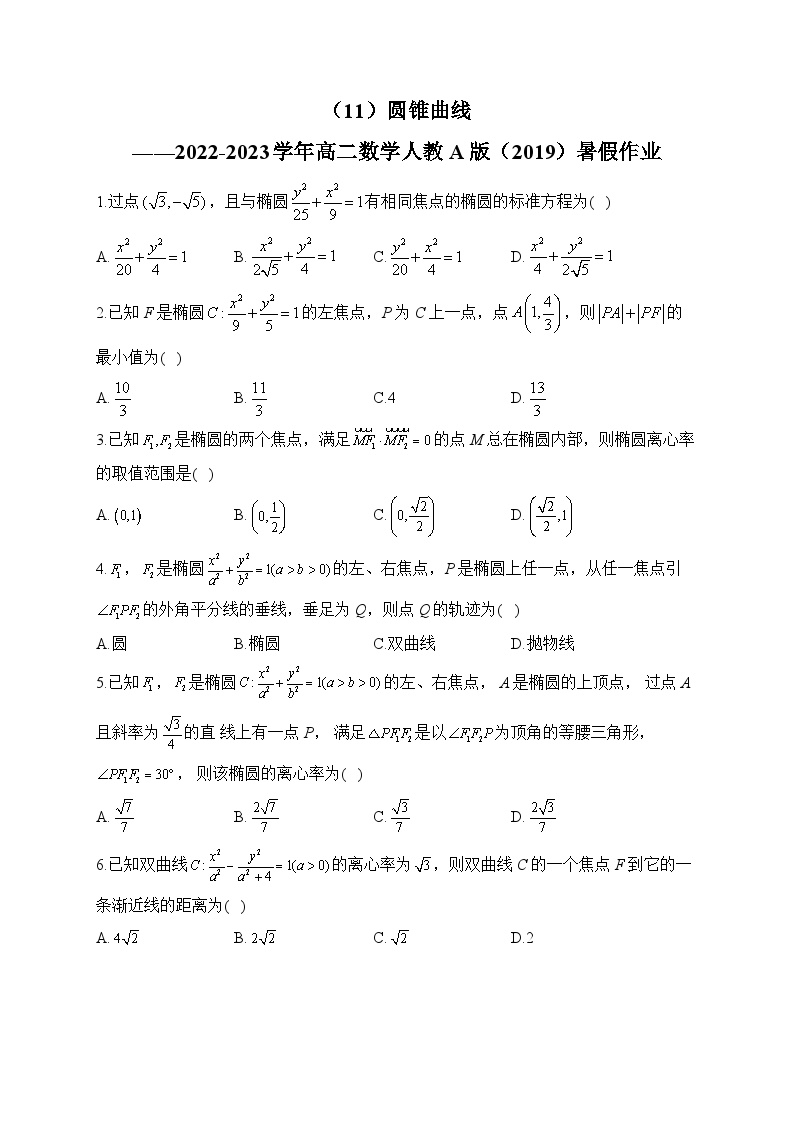 （11）圆锥曲线
——2022-2023学年高二数学人教A版（2019）暑假作业
1.过点(√3,−√5)，且与椭圆y²/25+x²/9=1有相同焦点的椭圆的标准方程为( )
A.x²/20+y²/4=1 B.x²/2√5+y²/4=1 C.y²/20+x²/4=1 D.x²/4+y²/2√5=1
2.已知F是椭圆C:x²/9+y²/5=1的左焦点，P为C上一点，点A(1,4/3)，则|PA|+|PF|的
最小值为( )
A.10/3 B.11/3 C.4 D.13/3
3.已知F₁,F₂是椭圆的两个焦点，满足MF₁·MF₂=0的点M总在椭圆内部，则椭圆离心率
的取值范围是( )
A.(0,1) B.(0,1/2) C.(0,√2/2) D.(√2/2,1)
4.F₁，F₂是椭圆x²/a²+y²/b²=1(a>b>0)的左、右焦点，P是椭圆上任一点，从任一焦点引
∠F₁PF₂的外角平分线的垂线，垂足为Q，则点Q的轨迹为( )
A.圆 B.椭圆 C.双曲线 D.抛物线
5.已知F₁，F₂是椭圆C:x²/a²+y²/b²=1(a>b>0)的左、右焦点，A是椭圆的上顶点， 过点A
且斜率为√3/4的直 线上有一点P， 满足△PF₁F₂是以∠F₁F₂P为顶角的等腰三角形，
∠PF₁F₂=30°， 则该椭圆的离心率为( )
A.√7/7 B.2√7/7 C.√3/7 D.2√3/7
6.已知双曲线C:x²/a²−y²/(a²+4)=1(a>0)的离心率为√3，则双曲线C的一个焦点F到它的一
条渐近线的距离为( )
A.4√2 B.2√2 C.√2 D.2